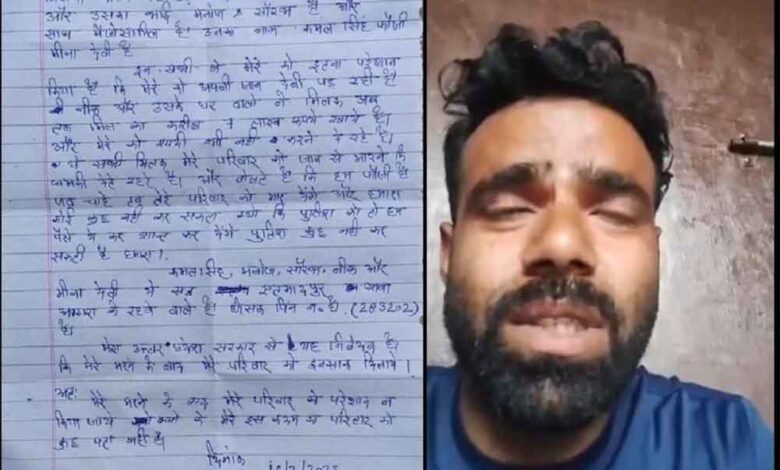 और उसका भाई मनोज व सौरभ है और
साथ में सामिल है। उनका नाम कमल सिंह फौजी
मीना देवी है
इन सभी ने मेरे को इतना परेशान
किया है कि मेरे को अपनी जान देनी पड़ रही है
और उसके घर वालो ने मिलकर अब
तक मिल का करीब 7 लाख रूपये खाये है।
और मेरे को शादी भी नहीं करने दे रहे।
ये सभी मिलकर मेरे परिवार को जान से मारने कि
धमकी देते रहते है। और बोलते है कि हम फौजी है
जब चाहे तब तेरे परिवार को मार देंगे और हमारा
कोई कुछ नहीं कर सकता क्यो कि पुलिस को तो हम
पैसे दे कर शान्त कर देंगे पुलिस कुछ नहीं कर
सकती है हमारा।
कमलसिंह, मनोज, सौरभ, और
मीना देवी ये सब एत्मादपुर थाना
आगरा के रहने वाले है। जिसका पिन न. है. (283202)
है।
मेरा उत्तर प्रदेश सरकार से यह निवेदन है।
कि मेरे मरने के बाद मेरे परिवार को इन्साफ दिलाये।
अतः मेरे मरने के बाद मेरे परिवार को परेशान न
किया जाये क्यो के मेरे इस कदम का परिवार को
कुछ पता नहीं है।
दिनांक